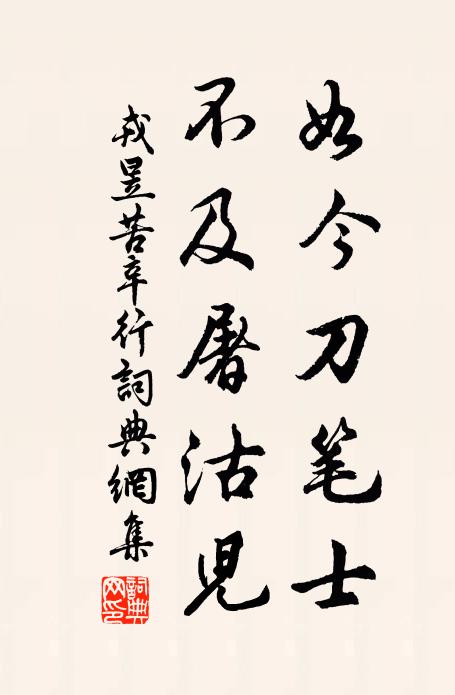 如今刀笔士
不及屠沽児
戎昱苦辛行詞典網集
詞典网印